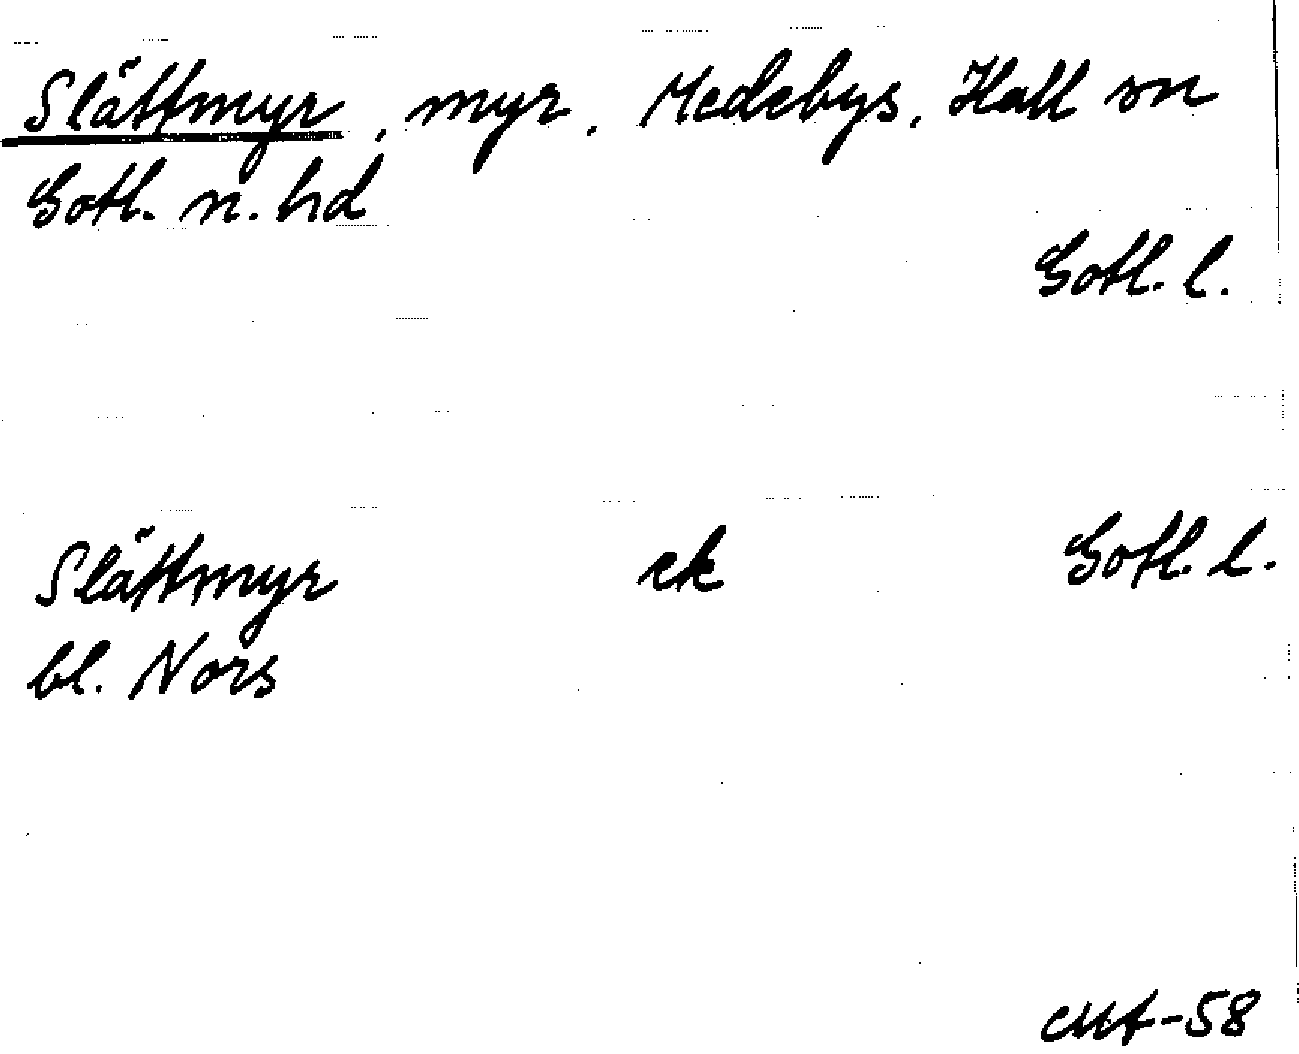 Slättmyr, myr, Medebys, Hall sn
Gotl. n. hd
Gotl. l.
Slättmyr ek Gotl. l.
bl. Nors